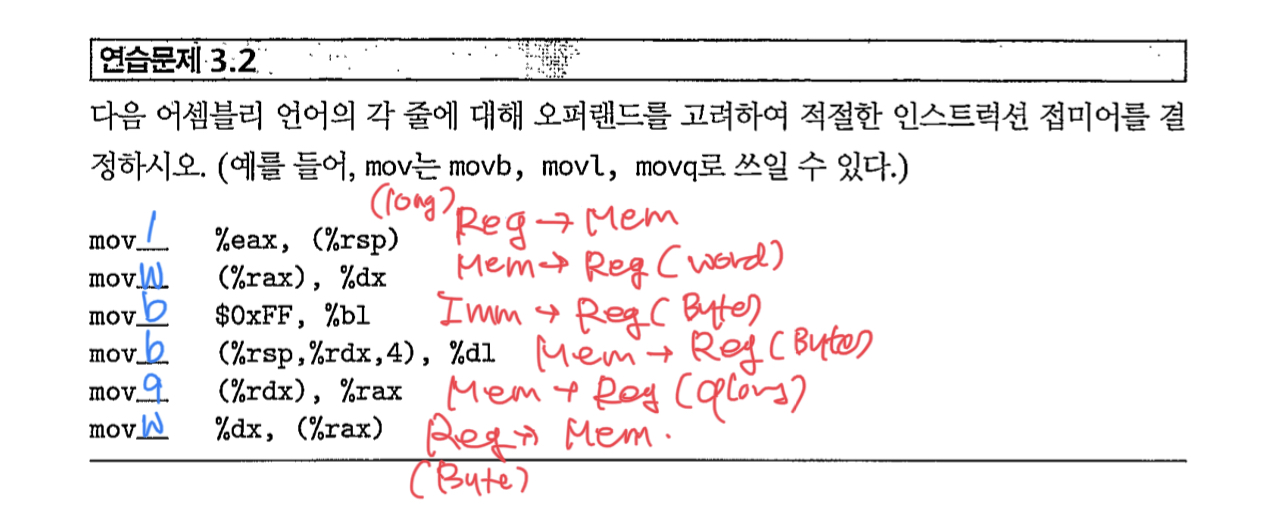 연습문제 3.2
다음 어셈블리 언어의 각 줄에 대해 오퍼랜드를 고려하여 적절한 인스트럭션 접미어를 결
정하시오. (예를 들어, mov는 movb, movl, movq로 쓰일 수 있다.)
(long)
movl %eax, (%rsp) Reg → Mem
movw (%rax), %dx Mem → Reg (word)
movb $0xFF, %bl Imm → Reg (Byte)
movb (%rsp,%rdx,4), %dl Mem → Reg (Byte)
movq (%rdx), %rax Mem → Reg
movw %dx, (%rax) Reg → Mem.
(Byte)